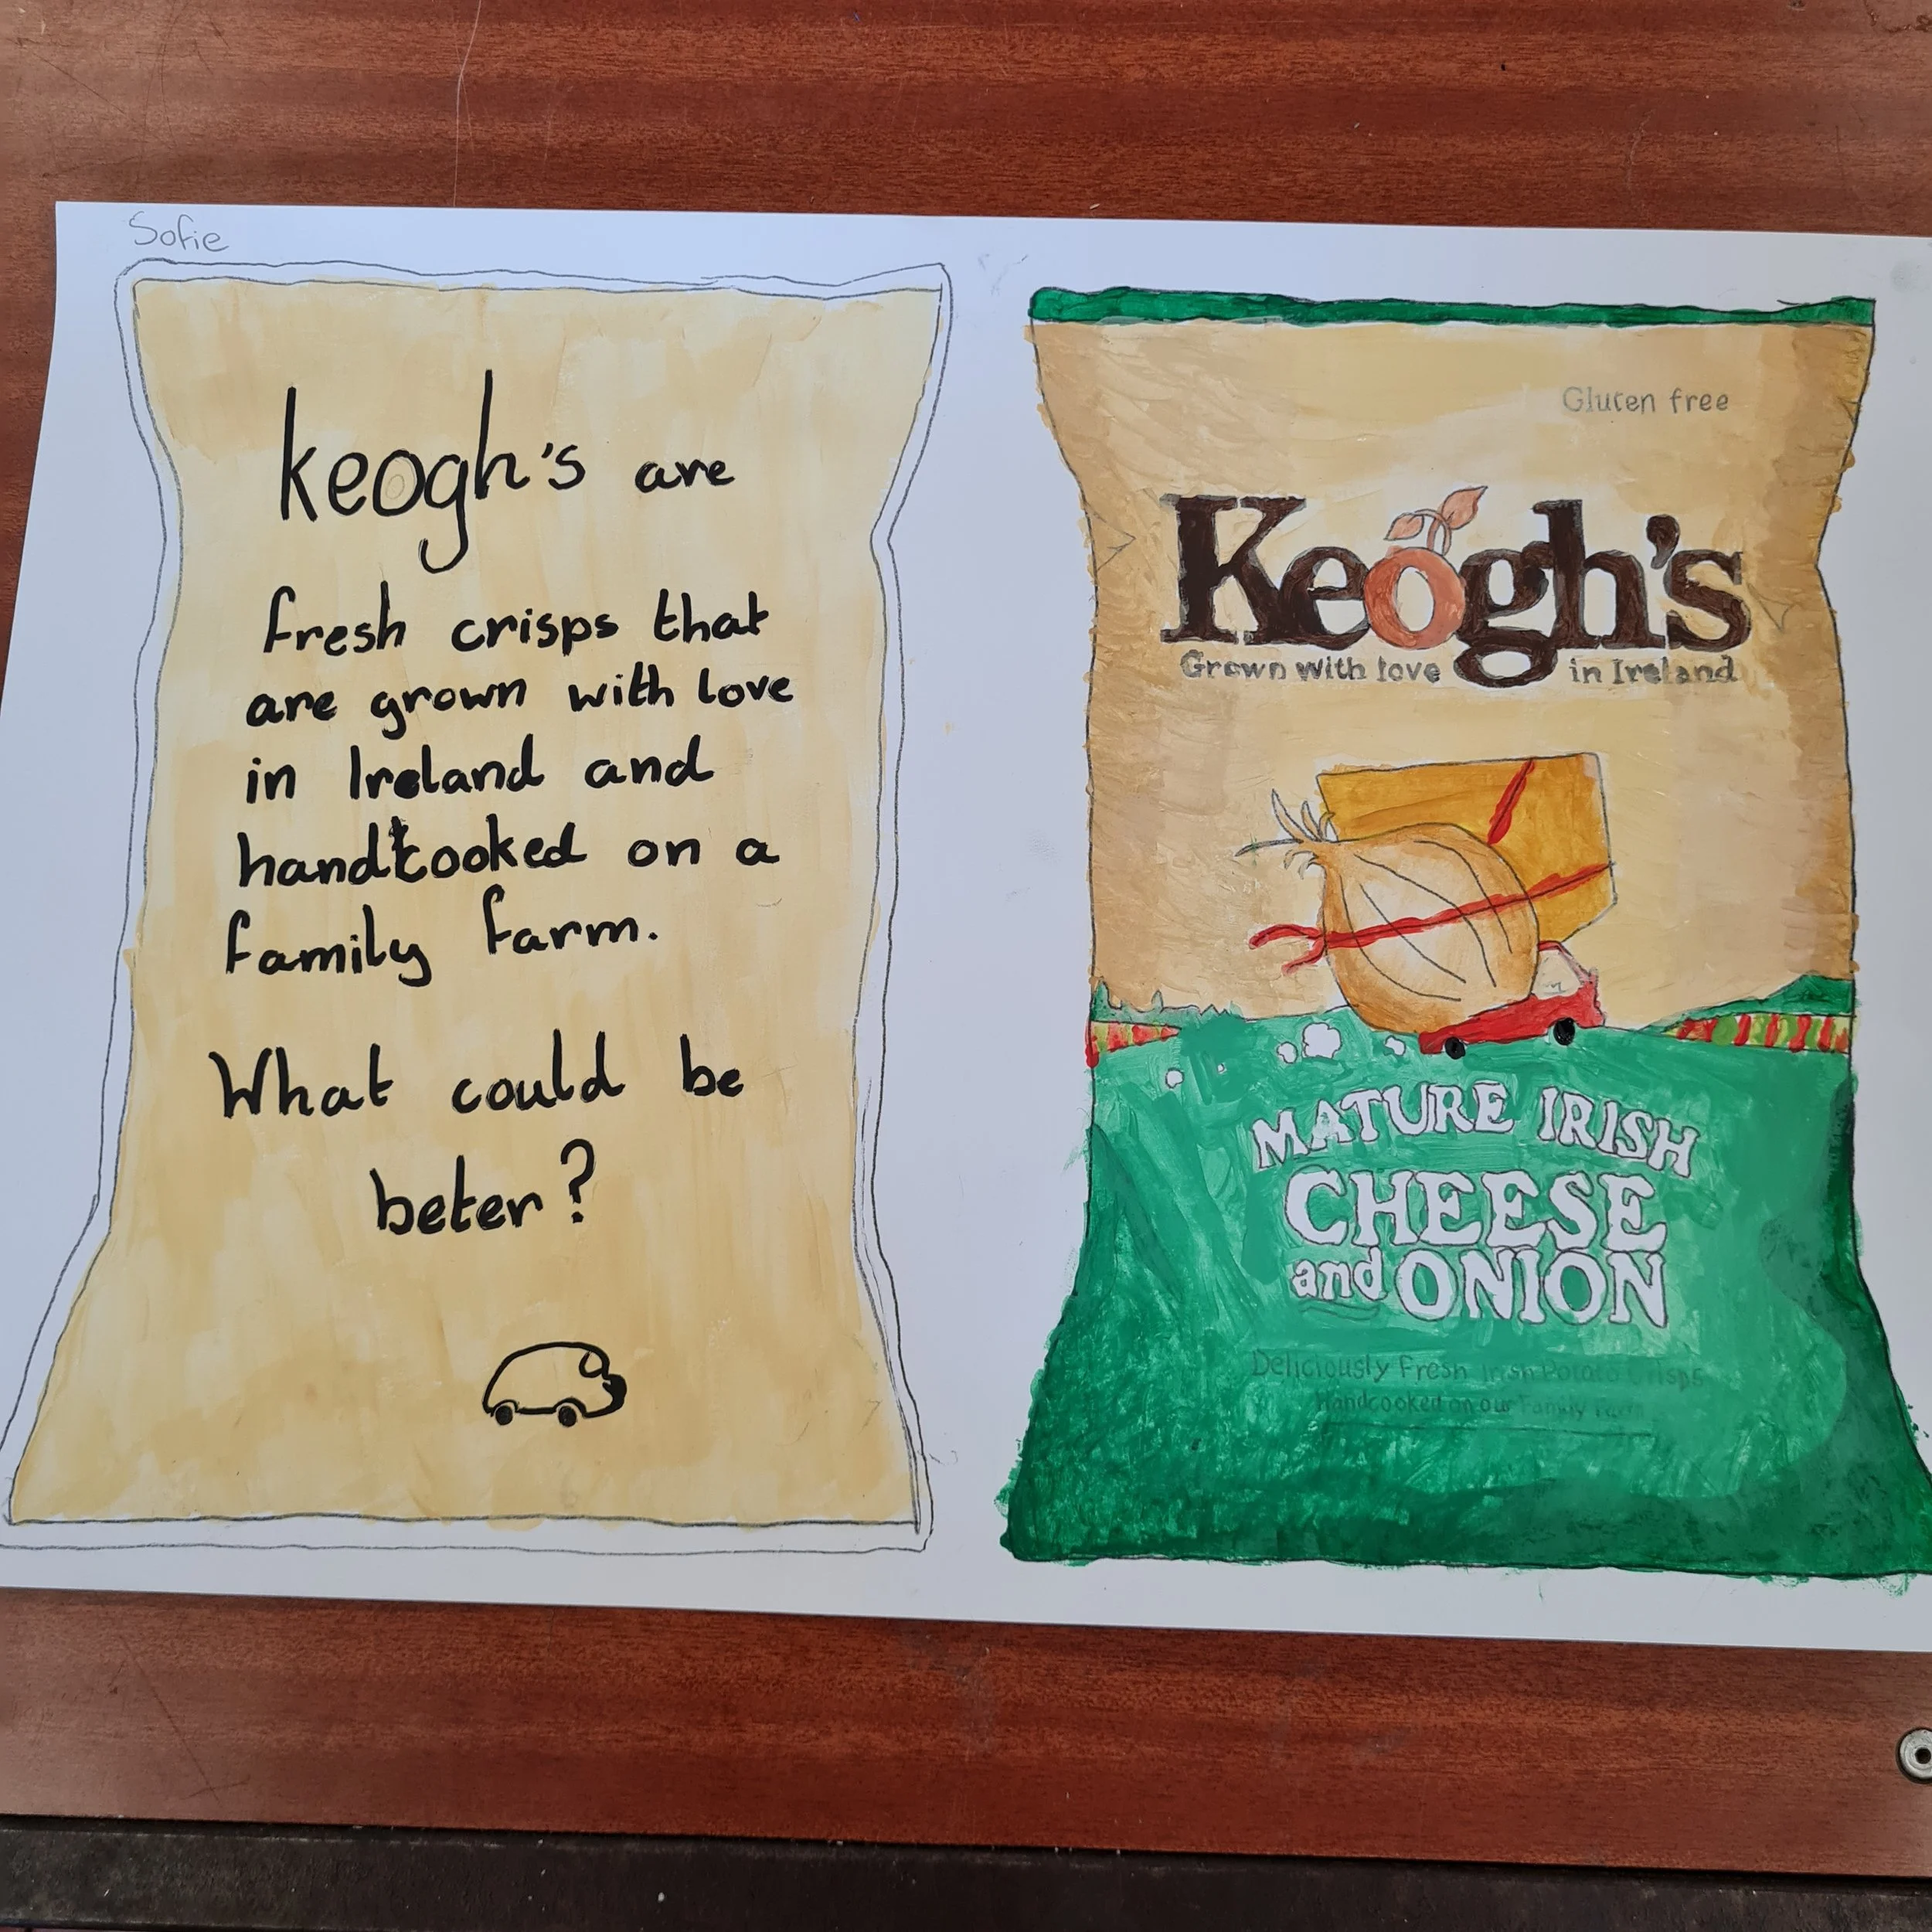 Sofie
keogh's are
fresh crisps that
are grown with love
in Ireland and
handcooked on a
family farm.
What could be
beter?
Gluten free
Keogh's
Grown with love in Ireland
MATURE IRISH
CHEESE
and ONION
Deliciously Fresh Irish Potato Crisps
Handcooked on our Family Farm